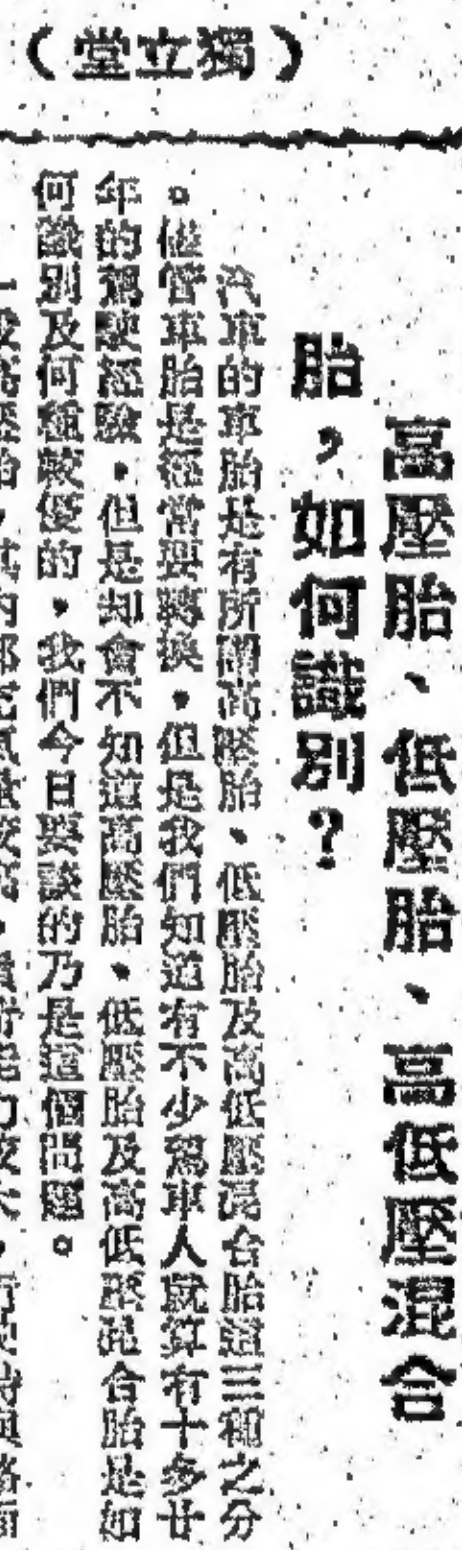 （獨立堂）
高壓胎、低壓胎、高低壓混合
胎，如何識別？
汽車的車胎是有所謂高壓胎、低壓胎及高低壓混合胎這三種之分
。儘管車胎是經常要轉換，但是我們知道有不少駕車人就算有十多廿
年的駕駛經驗，但是却會不知道高壓胎、低壓胎及高低壓混合胎是如
何識別及何種較優的，我們今日要談的乃是這個問題。